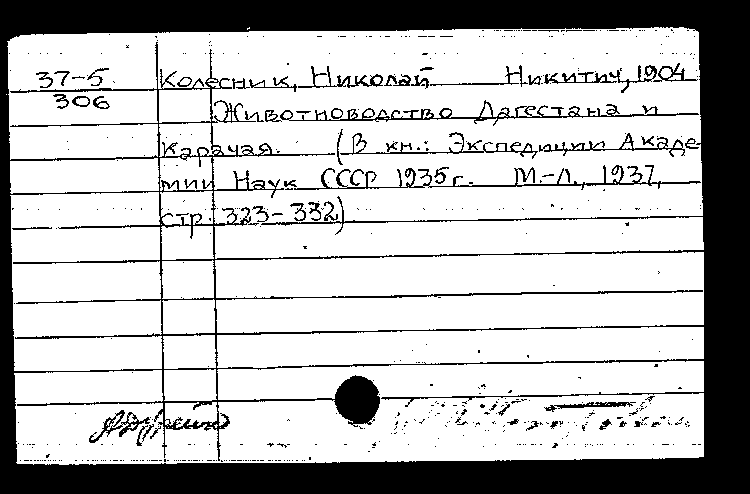 37-5
306
Колесник, Николай Никитич, 1904
Животноводство Дагестана и
Карачая. (В кн.: Экспедиции Акаде-
мии Наук СССР 1935 г. М.-Л., 1937,
стр. 323-332)